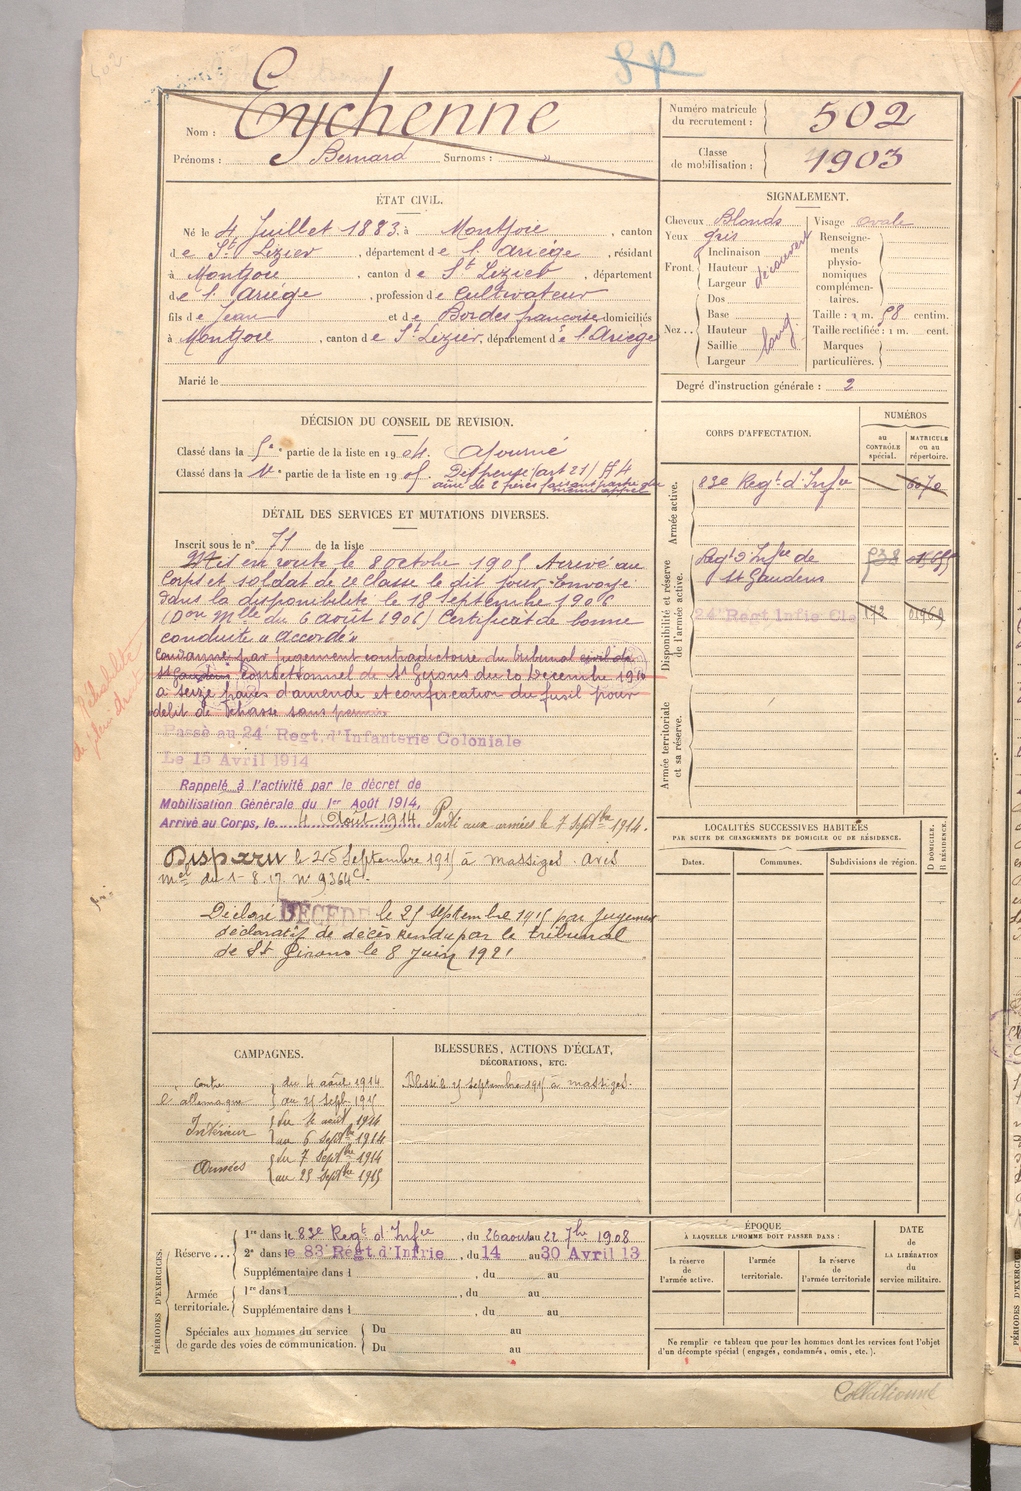 502
SP
Nom : Eychenne
Prénoms : Bernard Surnoms : »
Numéro matricule du recrutement : 502
Classe de mobilisation : 1903
ÉTAT CIVIL.
Né le 4 Juillet 1883, à Montjoie, canton
de St Lizier, département de l'Ariège, résidant
à Montjoie, canton de St Lizier, département
de l'Ariège, profession de Cultivateur
fils de Jean et de Bordes françoise domiciliés
à Montjoie, canton de St Lizier, département de l'Ariège
Marié le
SIGNALEMENT.
Cheveux Blonds Visage ovale
Yeux gris
Front Inclinaison Hauteur Largeur découvert
Nez Dos Base Hauteur Saillie Largeur long
Renseignements physionomiques complémentaires.
Taille : 1 m. 58 centim.
Taille rectifiée : 1 m. cent.
Marques particulières.
Degré d'instruction générale : 2
DÉCISION DU CONSEIL DE REVISION.
Classé dans la 5e partie de la liste en 1904. Ajourné
Classé dans la 1e partie de la liste en 1905. Dispensé (art 21)
aîné de 2 frères faisant partie du
même appel
DÉTAIL DES SERVICES ET MUTATIONS DIVERSES.
Inscrit sous le n° 71 de la liste
Mis en route le 8 octobre 1905 Arrivé au
Corps et soldat de 2e Classe le dit jour. Envoyé
dans la disponibilité le 18 Septembre 1906
(Don Mlle du 6 août 1906) Certificat de bonne
conduite "accordé"
Condamné par jugement contradictoire du tribunal civil de
St Gaudens Correctionnel de St Girons du 20 Décembre 1910
à seize francs d'amende et confiscation du fusil pour
délit de Chasse sans permis
de plein droit
Passé au 24e Regt d'Infanterie Coloniale
Le 15 Avril 1914
Rappelé à l'activité par le décret de
Mobilisation Générale du 1er Août 1914,
Arrivé au Corps, le 4 Août 1914 Parti aux armées le 7 Septbre 1914.
Disparu le 25 Septembre 1915 à Massiges. Avis
mel du 1-8.17. N° 9364 C.
Déclaré DÉCÉDÉ le 25 septembre 1915 par jugement
déclaratif de décès rendu par le tribunal
de St Girons le 8 Juin 1921
CORPS D'AFFECTATION.
NUMÉROS
au CONTRÔLE spécial.
MATRICULE ou au répertoire.
Armée active.
83e Regt d'Infie 6070
Disponibilité et réserve de l'armée active.
Regt d'Infie de
St Gaudens 538
24e Regt Infie Cle 172
Armée territoriale et sa réserve.
LOCALITÉS SUCCESSIVES HABITÉES
PAR SUITE DE CHANGEMENTS DE DOMICILE OU DE RÉSIDENCE.
Dates. Communes. Subdivisions de région. D DOMICILE. R RÉSIDENCE.
CAMPAGNES.
Contre l'allemagne du 4 août 1914
au 25 Sept. 1915
Intérieur du 4 août 1914
au 6 Septbre 1914
Armées du 7 Septbre 1914
au 25 Septbre 1915
BLESSURES, ACTIONS D'ÉCLAT,
DÉCORATIONS, ETC.
Blessé le 25 septembre 1915 à Massiges.
PÉRIODES D'EXERCICES.
Réserve ... 1re dans le 83e Regt d'Infie, du 26 août au 22 7bre 1908
2e dans le 83e Régt d'Infrie, du 14 au 30 Avril 13
Supplémentaire dans l , du au
Armée territoriale. 1re dans l , du au
Supplémentaire dans l , du au
Spéciales aux hommes du service
de garde des voies de communication. Du au
Du au
ÉPOQUE
À LAQUELLE L'HOMME DOIT PASSER DANS :
la réserve de l'armée active. l'armée territoriale. la réserve de l'armée territoriale
DATE DE LA LIBÉRATION du service militaire.
Ne remplir ce tableau que pour les hommes dont les services font l'objet
d'un décompte spécial (engagés, condamnés, omis, etc.).
Collationné